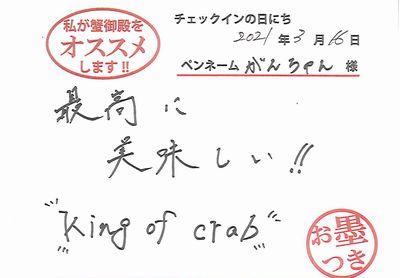 私が蟹御殿を
オススメ
します!!
チェックインの日にち
2021年3月16日
ペンネーム がんちゃん 様
最高に
美味しい!!
"King of crab"
お墨
つき